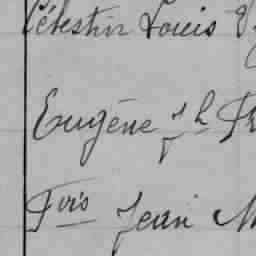 Célestin Louis
Eugène Jh
Fçois Jean M